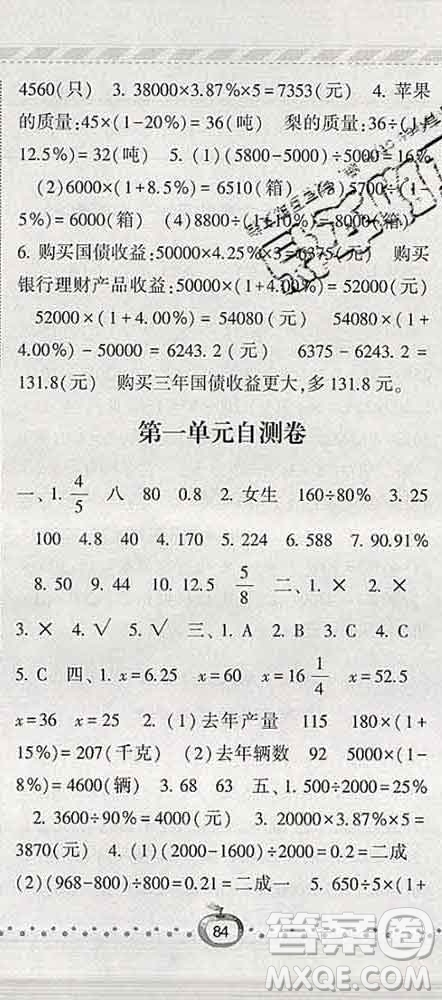 4560(只) 3. 38000×3.87%×5=7353(元) 4. 苹果
的质量:45×(1-20%)=36(吨) 梨的质量:36÷(1+
12.5%)=32(吨) 5. (1)(5800-5000)÷5000=16%
(2)6000×(1+8.5%)=6510(箱) 5700÷(1-
5%)=6000(箱) (4)8800÷(1+10%)=8000(箱)
6. 购买国债收益:50000×4.25%×3=6375(元) 购买
银行理财产品收益:50000×(1+4.00%)=52000(元)
52000×(1+4.00%)=54080(元) 54080×(1+
4.00%)-50000=6243.2(元) 6375-6243.2=
131.8(元) 购买三年国债收益更大,多131.8元。
第一单元自测卷
一、1. 4/5 八 80 0.8 2. 女生 160÷80% 3. 25
100 4. 8 40 4. 170 5. 224 6. 588 7. 90.91%
8. 50 9. 44 10. 12.5 5/8 二、1. × 2. ×
3. × 4. √ 5. √ 三、1. A 2. B 3. C 4. C
5. C 四、1. x=6.25 x=60 x=16 1/4 x=52.5
x=36 x=25 2. (1)去年产量 115 180×(1+
15%)=207(千克) (2)去年辆数 92 5000×(1-
8%)=4600(辆) 3. 68 63 五、1. 500÷2000=25%
2. 3600÷90%=4000(元) 3. 20000×3.87%×5=
3870(元) 4. (1)(2000-1600)÷2000=0.2=二成
(2)(968-800)÷800=0.21=二成一 5. 650÷5×(1+
84
答案圈
MXQE.COM